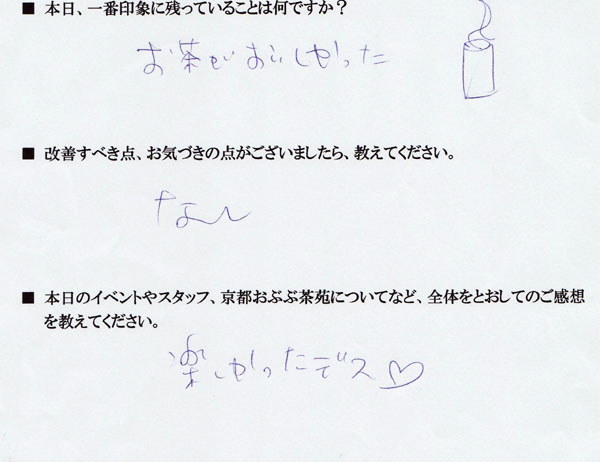 ■ 本日、一番印象に残っていることは何ですか？
お茶がおいしかった
■ 改善すべき点、お気づきの点がございましたら、教えてください。
なし
■ 本日のイベントやスタッフ、京都おぶぶ茶苑についてなど、全体をとおしてのご感想
を教えてください。
楽しかったデス♡